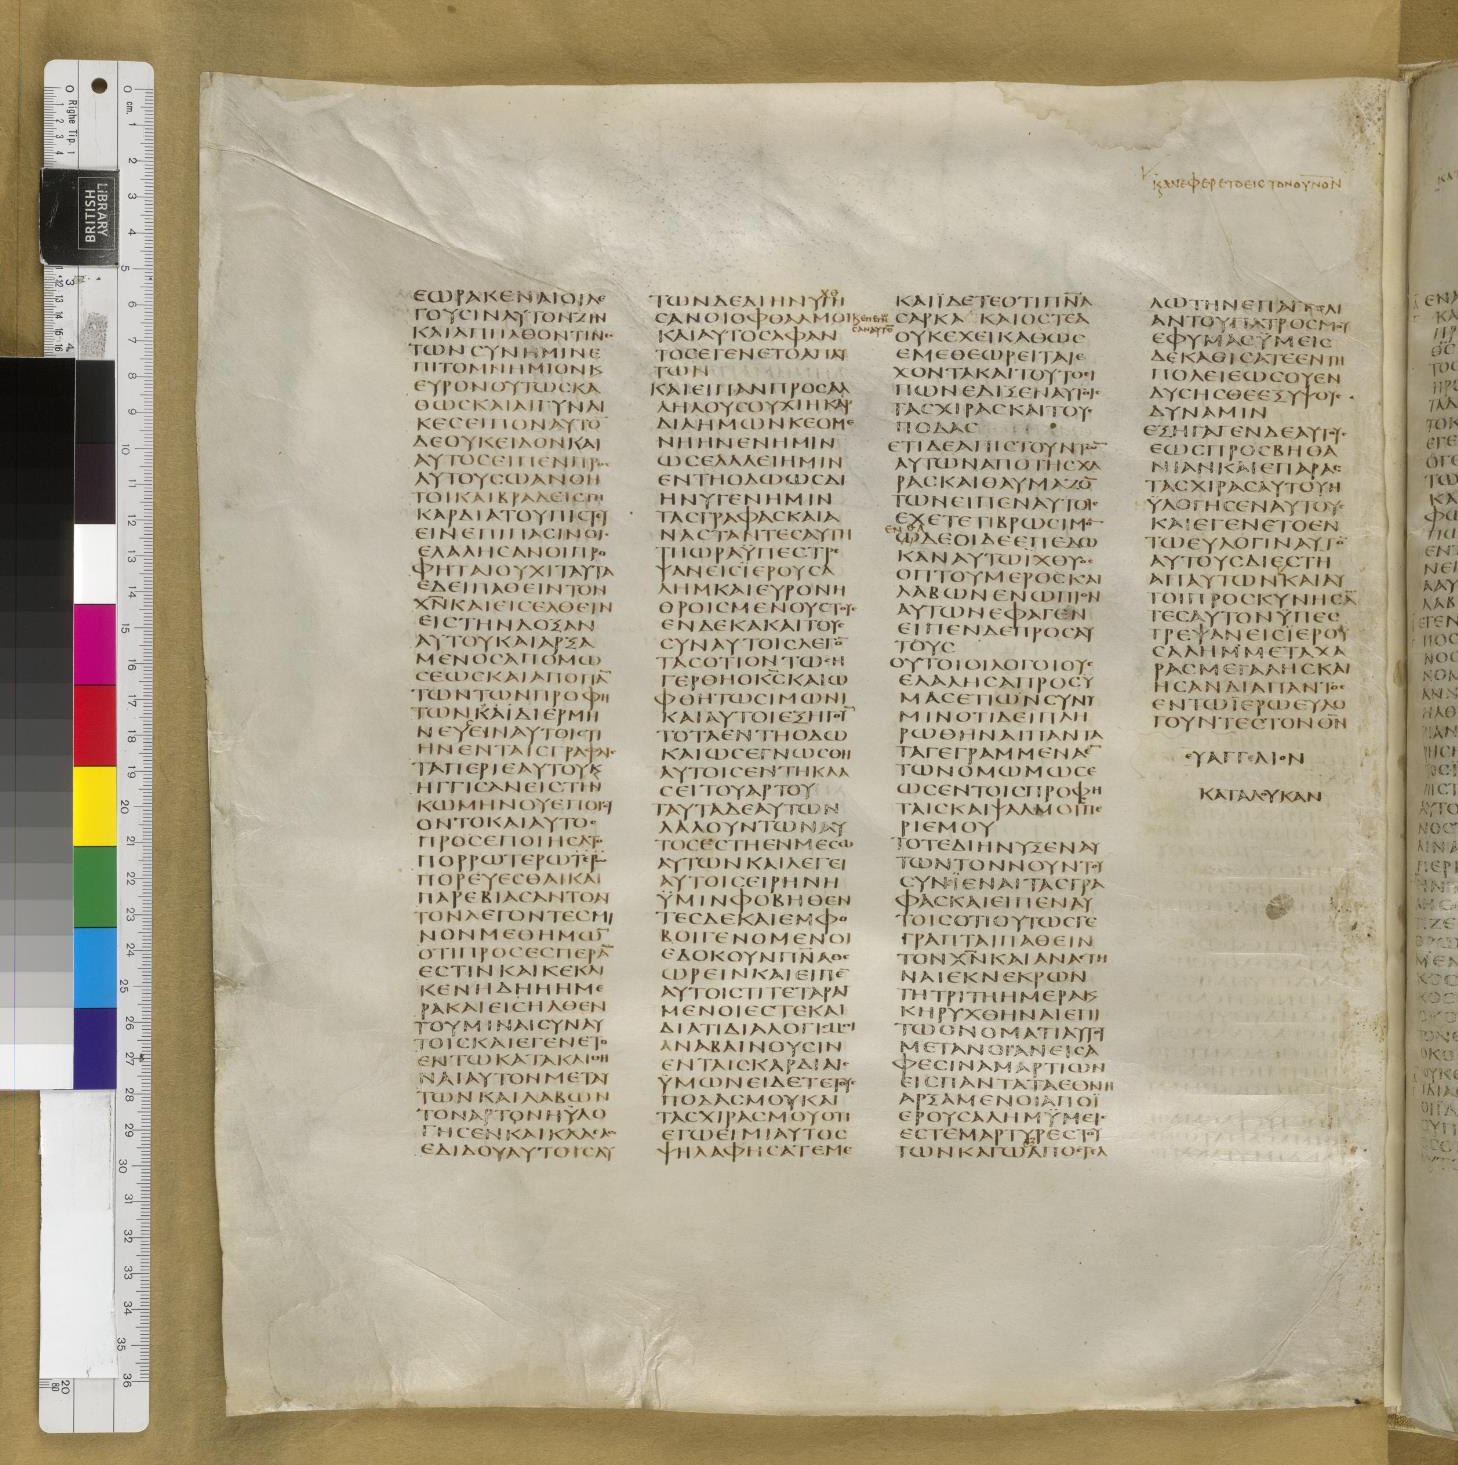 ΚΑΝΕΦΕΡΕΤΟΕΙϹΤΟΝΟΥΝΟΝ
ΕΩΡΑΚΕΝΑΙΟΙΛΕ
ΓΟΥϹΙΝΑΥΤΟΝΖΗΝ
ΚΑΙΑΠΗΛΘΟΝΤΙΝΕϹ
ΤΩΝϹΥΝΗΜΙΝΕ
ΠΙΤΟΜΝΗΜΙΟΝΚ
ΕΥΡΟΝΟΥΤΩϹΚΑ
ΘΩϹΚΑΙΑΙΓΥΝΑΙ
ΚΕϹΕΙΠΟΝΑΥΤΟ
ΔΕΟΥΚΕΙΔΟΝΚΑΙ
ΑΥΤΟϹΕΙΠΕΝΠΡΟϹ
ΑΥΤΟΥϹΩΑΝΟΗ
ΤΟΙΚΑΙΒΡΑΔΕΙϹΤΗ
ΚΑΡΔΙΑΤΟΥΠΙϹΤΕΥ
ΕΙΝΕΠΙΠΑϹΙΝΟΙϹ
ΕΛΑΛΗϹΑΝΟΙΠΡΟ
ΦΗΤΑΙΟΥΧΙΤΑΥΤΑ
ΕΔΕΙΠΑΘΕΙΝΤΟΝ
ΧΝ̅ΚΑΙΕΙϹΕΛΘΕΙΝ
ΕΙϹΤΗΝΔΟΞΑΝ
ΑΥΤΟΥΚΑΙΑΡΞΑ
ΜΕΝΟϹΑΠΟΜΩ
ϹΕΩϹΚΑΙΑΠΟΠΑ̅
ΤΩΝΤΩΝΠΡΟΦΗ
ΤΩΝΚΑΙΔΙΕΡΜΗ
ΝΕΥΕΙΝΑΥΤΟΙϹΤΙ
ΗΝΕΝΤΑΙϹΓΡΑΦΑΙϹ
ΤΑΠΕΡΙΕΑΥΤΟΥΚ
ΗΓΓΙϹΑΝΕΙϹΤΗΝ
ΚΩΜΗΝΟΥΕΠΟΡΕΥ
ΟΝΤΟΚΑΙΑΥΤΟϹ
ΠΡΟϹΕΠΟΙΗϹΑΤΟ
ΠΟΡΡΩΤΕΡΩ
ΠΟΡΕΥΕϹΘΑΙΚΑΙ
ΠΑΡΕΒΙΑϹΑΝΤΟΝ
ΤΟΝΛΕΓΟΝΤΕϹΜΙ
ΝΟΝΜΕΘΗΜΩ̅
ΟΤΙΠΡΟϹΕϹΠΕΡΑ̅
ΕϹΤΙΝΚΑΙΚΕΚΛΙ
ΚΕΝΗΔΗΗΗΜΕ
ΡΑΚΑΙΕΙϹΗΛΘΕΝ
ΤΟΥΜΙΝΑΙϹΥΝΑΥ
ΤΟΙϹΚΑΙΕΓΕΝΕΤΟ
ΕΝΤΩΚΑΤΑΚΛΙΘΗ
ΝΑΙΑΥΤΟΝΜΕΤΑΥ
ΤΩΝΚΑΙΛΑΒΩΝ
ΤΟΝΑΡΤΟΝΗΫΛΟ
ΓΗϹΕΝΚΑΙΚΛΑϹΑϹ
ΕΔΙΔΟΥΑΥΤΟΙϹΑΥ
ΤΩΝΔΕΔΙΗΝΥΓΗ
ϹΑΝΟΙΟΦΘΑΛΜΟΙ
ΚΑΙΑΥΤΟϹΑΦΑΝ
ΤΟϹΕΓΕΝΕΤΟΑΠΑΥ
ΤΩΝ
ΚΑΙΕΙΠΑΝΠΡΟϹΑΛ
ΛΗΛΟΥϹΟΥΧΙΗΚΑΡ
ΔΙΑΗΜΩΝΚΕΟΜΕ
ΝΗΗΝΕΝΗΜΙΝ
ΩϹΕΛΑΛΕΙΗΜΙΝ
ΕΝΤΗΟΔΩΩϹΔΙ
ΗΝΥΓΕΝΗΜΙΝ
ΤΑϹΓΡΑΦΑϹΚΑΙΑ
ΝΑϹΤΑΝΤΕϹΑΥΤΗ
ΤΗΩΡΑΫΠΕϹΤΡΕ
ΨΑΝΕΙϹΪΕΡΟΥϹΑ
ΛΗΜΚΑΙΕΥΡΟΝΗ
ΘΡΟΙϹΜΕΝΟΥϹΤΟΥϹ
ΕΝΔΕΚΑΚΑΙΤΟΥϹ
ϹΥΝΑΥΤΟΙϹΛΕΓΟ̅
ΤΑϹΟΤΙΟΝΤΩϹΗ
ΓΕΡΘΗΟΚϹ̅ΚΑΙΩ
ΦΘΗΤΩϹΙΜΩΝΙ
ΚΑΙΑΥΤΟΙΕΞΗΓΟΥ̅
ΤΟΤΑΕΝΤΗΟΔΩ
ΚΑΙΩϹΕΓΝΩϹΘΗ
ΑΥΤΟΙϹΕΝΤΗΚΛΑ
ϹΕΙΤΟΥΑΡΤΟΥ
ΤΑΥΤΑΔΕΑΥΤΩΝ
ΛΑΛΟΥΝΤΩΝΑΥ
ΤΟϹΕϹΤΗΕΝΜΕϹΩ
ΑΥΤΩΝΚΑΙΛΕΓΕΙ
ΑΥΤΟΙϹΕΙΡΗΝΗ
ΫΜΙΝΦΟΒΗΘΕΝ
ΤΕϹΔΕΚΑΙΕΜΦΟ
ΒΟΙΓΕΝΟΜΕΝΟΙ
ΕΔΟΚΟΥΝΠΝΑ̅ΘΕ
ΩΡΕΙΝΚΑΙΕΙΠΕ̅
ΑΥΤΟΙϹΤΙΤΕΤΑΡΑΓ
ΜΕΝΟΙΕϹΤΕΚΑΙ
ΔΙΑΤΙΔΙΑΛΟΓΙϹΜΟΙ
ΑΝΑΒΑΙΝΟΥϹΙΝ
ΕΝΤΑΙϹΚΑΡΔΙΑΙϹ
ΫΜΩΝΕΙΔΕΤΕΤΟΥϹ
ΠΟΔΑϹΜΟΥΚΑΙ
ΤΑϹΧΙΡΑϹΜΟΥΟΤΙ
ΕΓΩΕΙΜΙΑΥΤΟϹ
ΨΗΛΑΦΗϹΑΤΕΜΕ
ΚΑΙΪΔΕΤΕΟΤΙΠΝΑ̅
ϹΑΡΚΑϹΚΑΙΟϹΤΕΑ
ΟΥΚΕΧΕΙΚΑΘΩϹ
ΕΜΕΘΕΩΡΕΙΤΑΙΕ
ΧΟΝΤΑΚΑΙΤΟΥΤΟΕΙ
ΠΩΝΕΔΙΞΕΝΑΥΤΟΙϹ
ΤΑϹΧΙΡΑϹΚΑΙΤΟΥϹ
ΠΟΔΑϹ
ΕΤΙΔΕΑΠΙϹΤΟΥΝΤΩ̅
ΑΥΤΩΝΑΠΟΤΗϹΧΑ
ΡΑϹΚΑΙΘΑΥΜΑΖΟ̅
ΤΩΝΕΙΠΕΝΑΥΤΟΙϹ
ΕΧΕΤΕΤΙΒΡΩϹΙΜΟ̅
ΕΝΘΑ
ΩΔΕΟΙΔΕΕΠΕΔΩ
ΚΑΝΑΥΤΩΪΧΘΥΟϹ
ΟΠΤΟΥΜΕΡΟϹΚΑΙ
ΛΑΒΩΝΕΝΩΠΙΟΝ
ΑΥΤΩΝΕΦΑΓΕΝ
ΕΙΠΕΝΔΕΠΡΟϹΑΥ
ΤΟΥϹ
ΟΥΤΟΙΟΙΛΟΓΟΙΟΥϹ
ΕΛΑΛΗϹΑΠΡΟϹΥ
ΜΑϹΕΤΙΩΝϹΥΝΥ
ΜΙΝΟΤΙΔΕΙΠΛΗ
ΡΩΘΗΝΑΙΠΑΝΤΑ
ΤΑΓΕΓΡΑΜΜΕΝΑΕ̅
ΤΩΝΟΜΩΜΩϹΕ
ΩϹΕΝΤΟΙϹΠΡΟΦΗ
ΤΑΙϹΚΑΙΨΑΛΜΟΙϹΠΕ
ΡΙΕΜΟΥ
ΤΟΤΕΔΙΗΝΥΞΕΝΑΥ
ΤΩΝΤΟΝΝΟΥΝΤΟΥ
ϹΥΝΪΕΝΑΙΤΑϹΓΡΑ
ΦΑϹΚΑΙΕΙΠΕΝΑΥ
ΤΟΙϹΟΤΙΟΥΤΩϹΓΕ
ΓΡΑΠΤΑΙΠΑΘΕΙΝ
ΤΟΝΧΝ̅ΚΑΙΑΝΑϹΤΗ
ΝΑΙΕΚΝΕΚΡΩΝ
ΤΗΤΡΙΤΗΗΜΕΡΑΚ
ΚΗΡΥΧΘΗΝΑΙΕΠΙ
ΤΩΟΝΟΜΑΤΙΑΥΤΟΥ
ΜΕΤΑΝΟΙΑΝΕΙϹΑ
ΦΕϹΙΝΑΜΑΡΤΙΩΝ
ΕΙϹΠΑΝΤΑΤΑΕΘΝΗ
ΑΡΞΑΜΕΝΟΙΑΠΟΪ
ΕΡΟΥϹΑΛΗΜΫΜΕΙϹ
ΕϹΤΕΜΑΡΤΥΡΕϹΤΟΥ
ΤΩΝΚΑΓΩΑΠΟϹΤΕΛ
ΛΩΤΗΝΕΠΑΓΓΕΛΙ
ΑΝΤΟΥΠΑΤΡΟϹΜΟΥ
ΕΦΥΜΑϹΫΜΕΙϹ
ΔΕΚΑΘΙϹΑΤΕΕΝΤΗ
ΠΟΛΕΙΕΩϹΟΥΕΝ
ΔΥϹΗϹΘΕΕΞΥΨΟΥϹ
ΔΥΝΑΜΙΝ
ΕΞΗΓΑΓΕΝΔΕΑΥΤΟΥϹ
ΕΩϹΠΡΟϹΒΗΘΑ
ΝΙΑΝΚΑΙΕΠΑΡΑϹ
ΤΑϹΧΙΡΑϹΑΥΤΟΥΗ
ΫΛΟΓΗϹΕΝΑΥΤΟΥϹ
ΚΑΙΕΓΕΝΕΤΟΕΝ
ΤΩΕΥΛΟΓΙΝΑΥΤΟ̅
ΑΥΤΟΥϹΔΙΕϹΤΗ
ΑΠΑΥΤΩΝΚΑΙΑΥ
ΤΟΙΠΡΟϹΚΥΝΗϹΑ̅
ΤΕϹΑΥΤΟΝΫΠΕϹ
ΤΡΕΨΑΝΕΙϹΪΕΡΟΥ
ϹΑΛΗΜΜΕΤΑΧΑ
ΡΑϹΜΕΓΑΛΗϹΚΑΙ
ΗϹΑΝΔΙΑΠΑΝΤΟϹ
ΕΝΤΩΪΕΡΩΕΥΛΟ
ΓΟΥΝΤΕϹΤΟΝΘΝ̅
ΕΥΑΓΓΕΛΙΟΝ
ΚΑΤΑΛΟΥΚΑΝ
LIBRARY
BRITISH
cm.
Righe Tip.